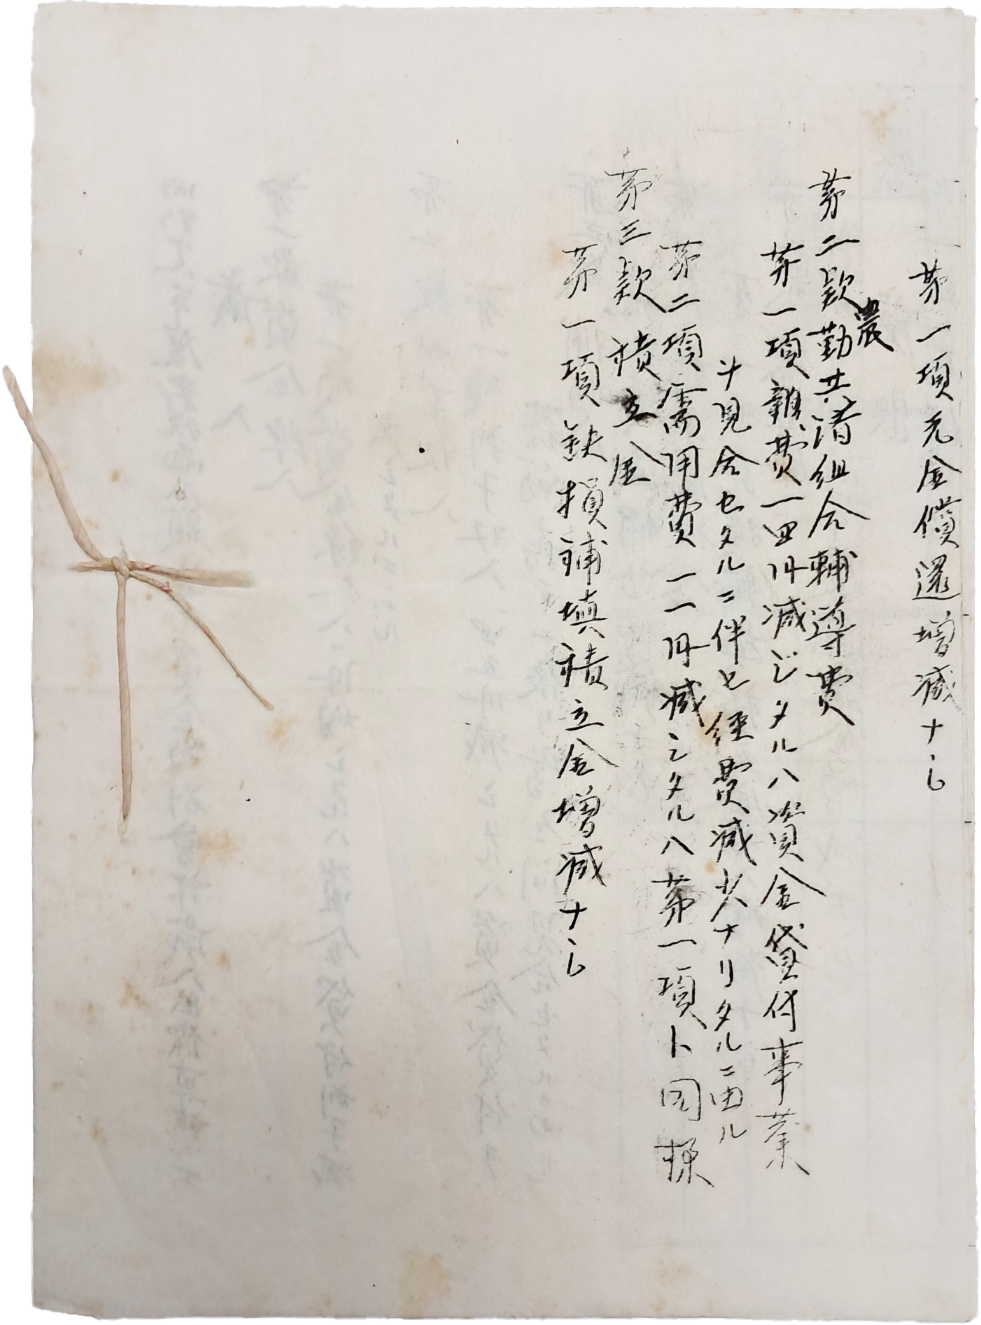 第一項元金償還増減ナシ
第二款勤農共済組合輔導費
第一項雑費一四円減ジタルハ資金貸付事業
ヲ見合セタルニ伴ヒ経費減少ナリタルニ由ル
第二項需用費一一円減シタルハ第一項ト同様
第三款積立金
第一項欠損補填積立金増減ナシ